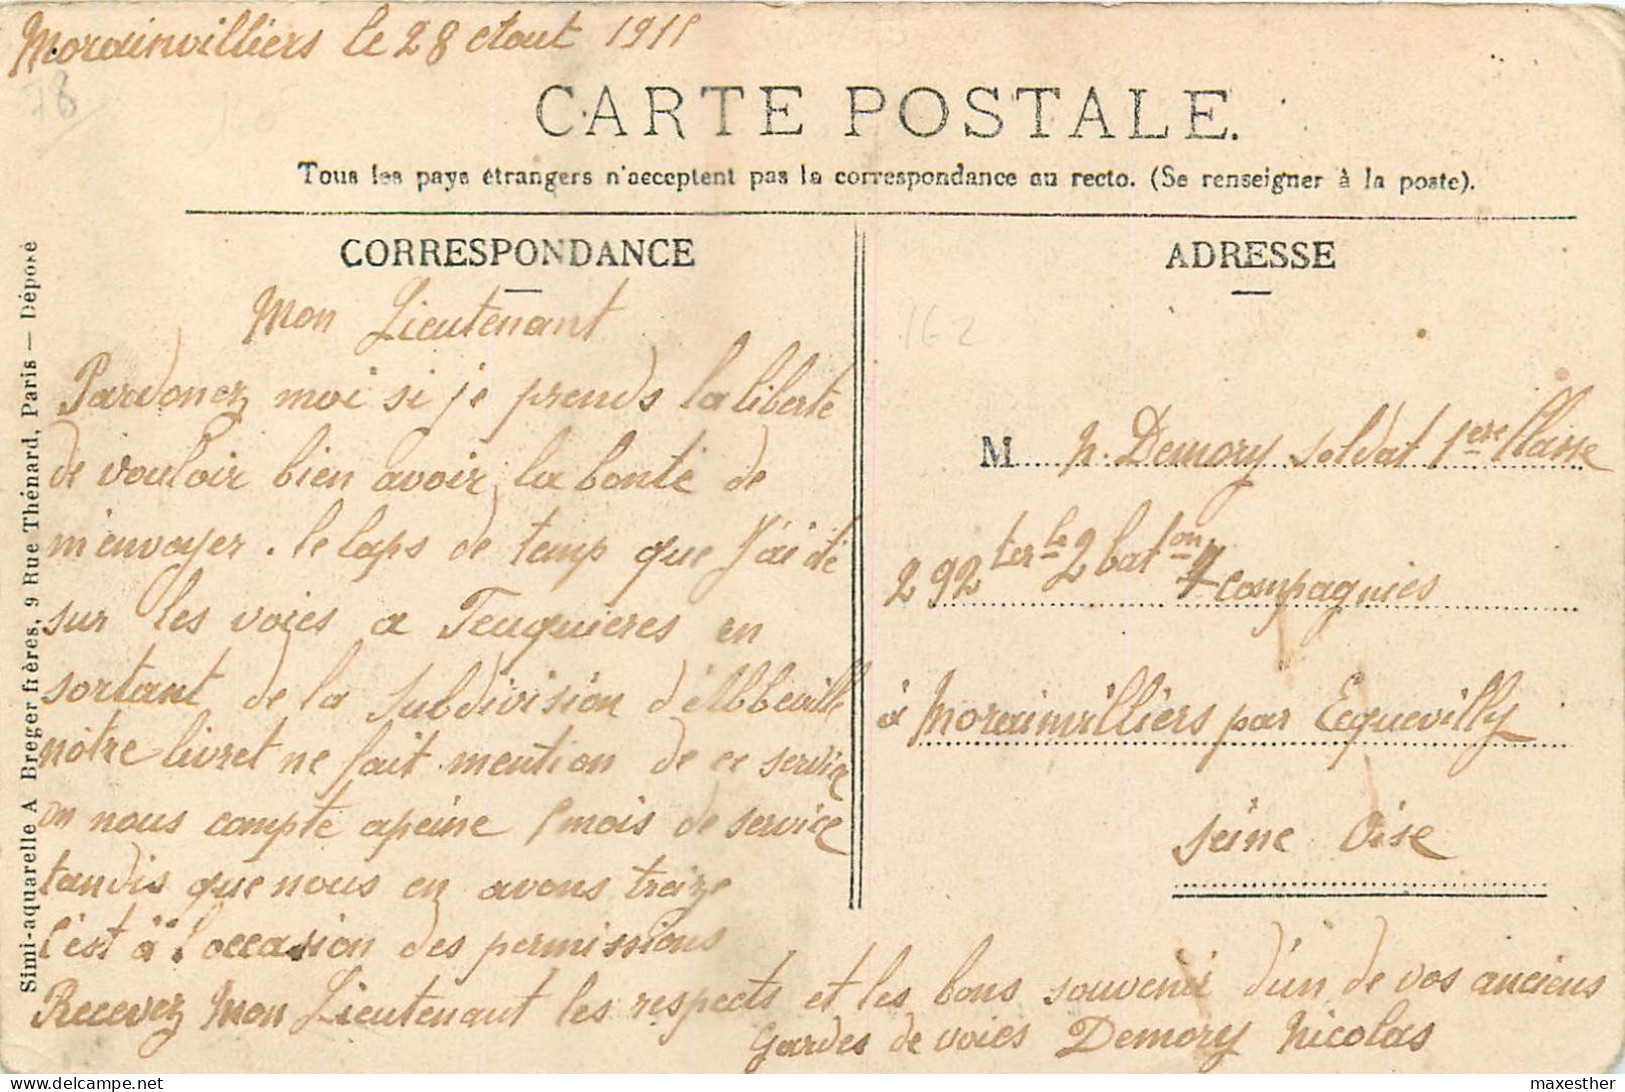 Morainvilliers le 28 Aout 1915
78
CARTE POSTALE.
Tous les pays étrangers n'acceptent pas la correspondance au recto. (Se renseigner à la poste).
CORRESPONDANCE
Mon Lieutenant
Pardonez moi si je prends la liberté
de vouloir bien avoir la bonté de
m'envoyer. le laps de temp que J'ai été
sur les voies a Feuquieres en
sortant de la Subdivision d'Abbeville
notre livret ne fait mention de ce service
on nous compte apeine 1 mois de service
tandis que nous en avons treize
C'est à l'occasion des permissions
Recevez Mon Lieutenant les respects et les bons souvenir d'un de vos anciens
Gardes de voies Demory Nicolas
ADRESSE
162
M N. Demory soldat 1ere Classe
292 ter le 2 bat on 7 compagnies
à Morainvilliers par Ecquevilly
Seine Oise
Simi-aquarelle A Breger frères, 9 Rue Thénard, Paris — Déposé
maxesther